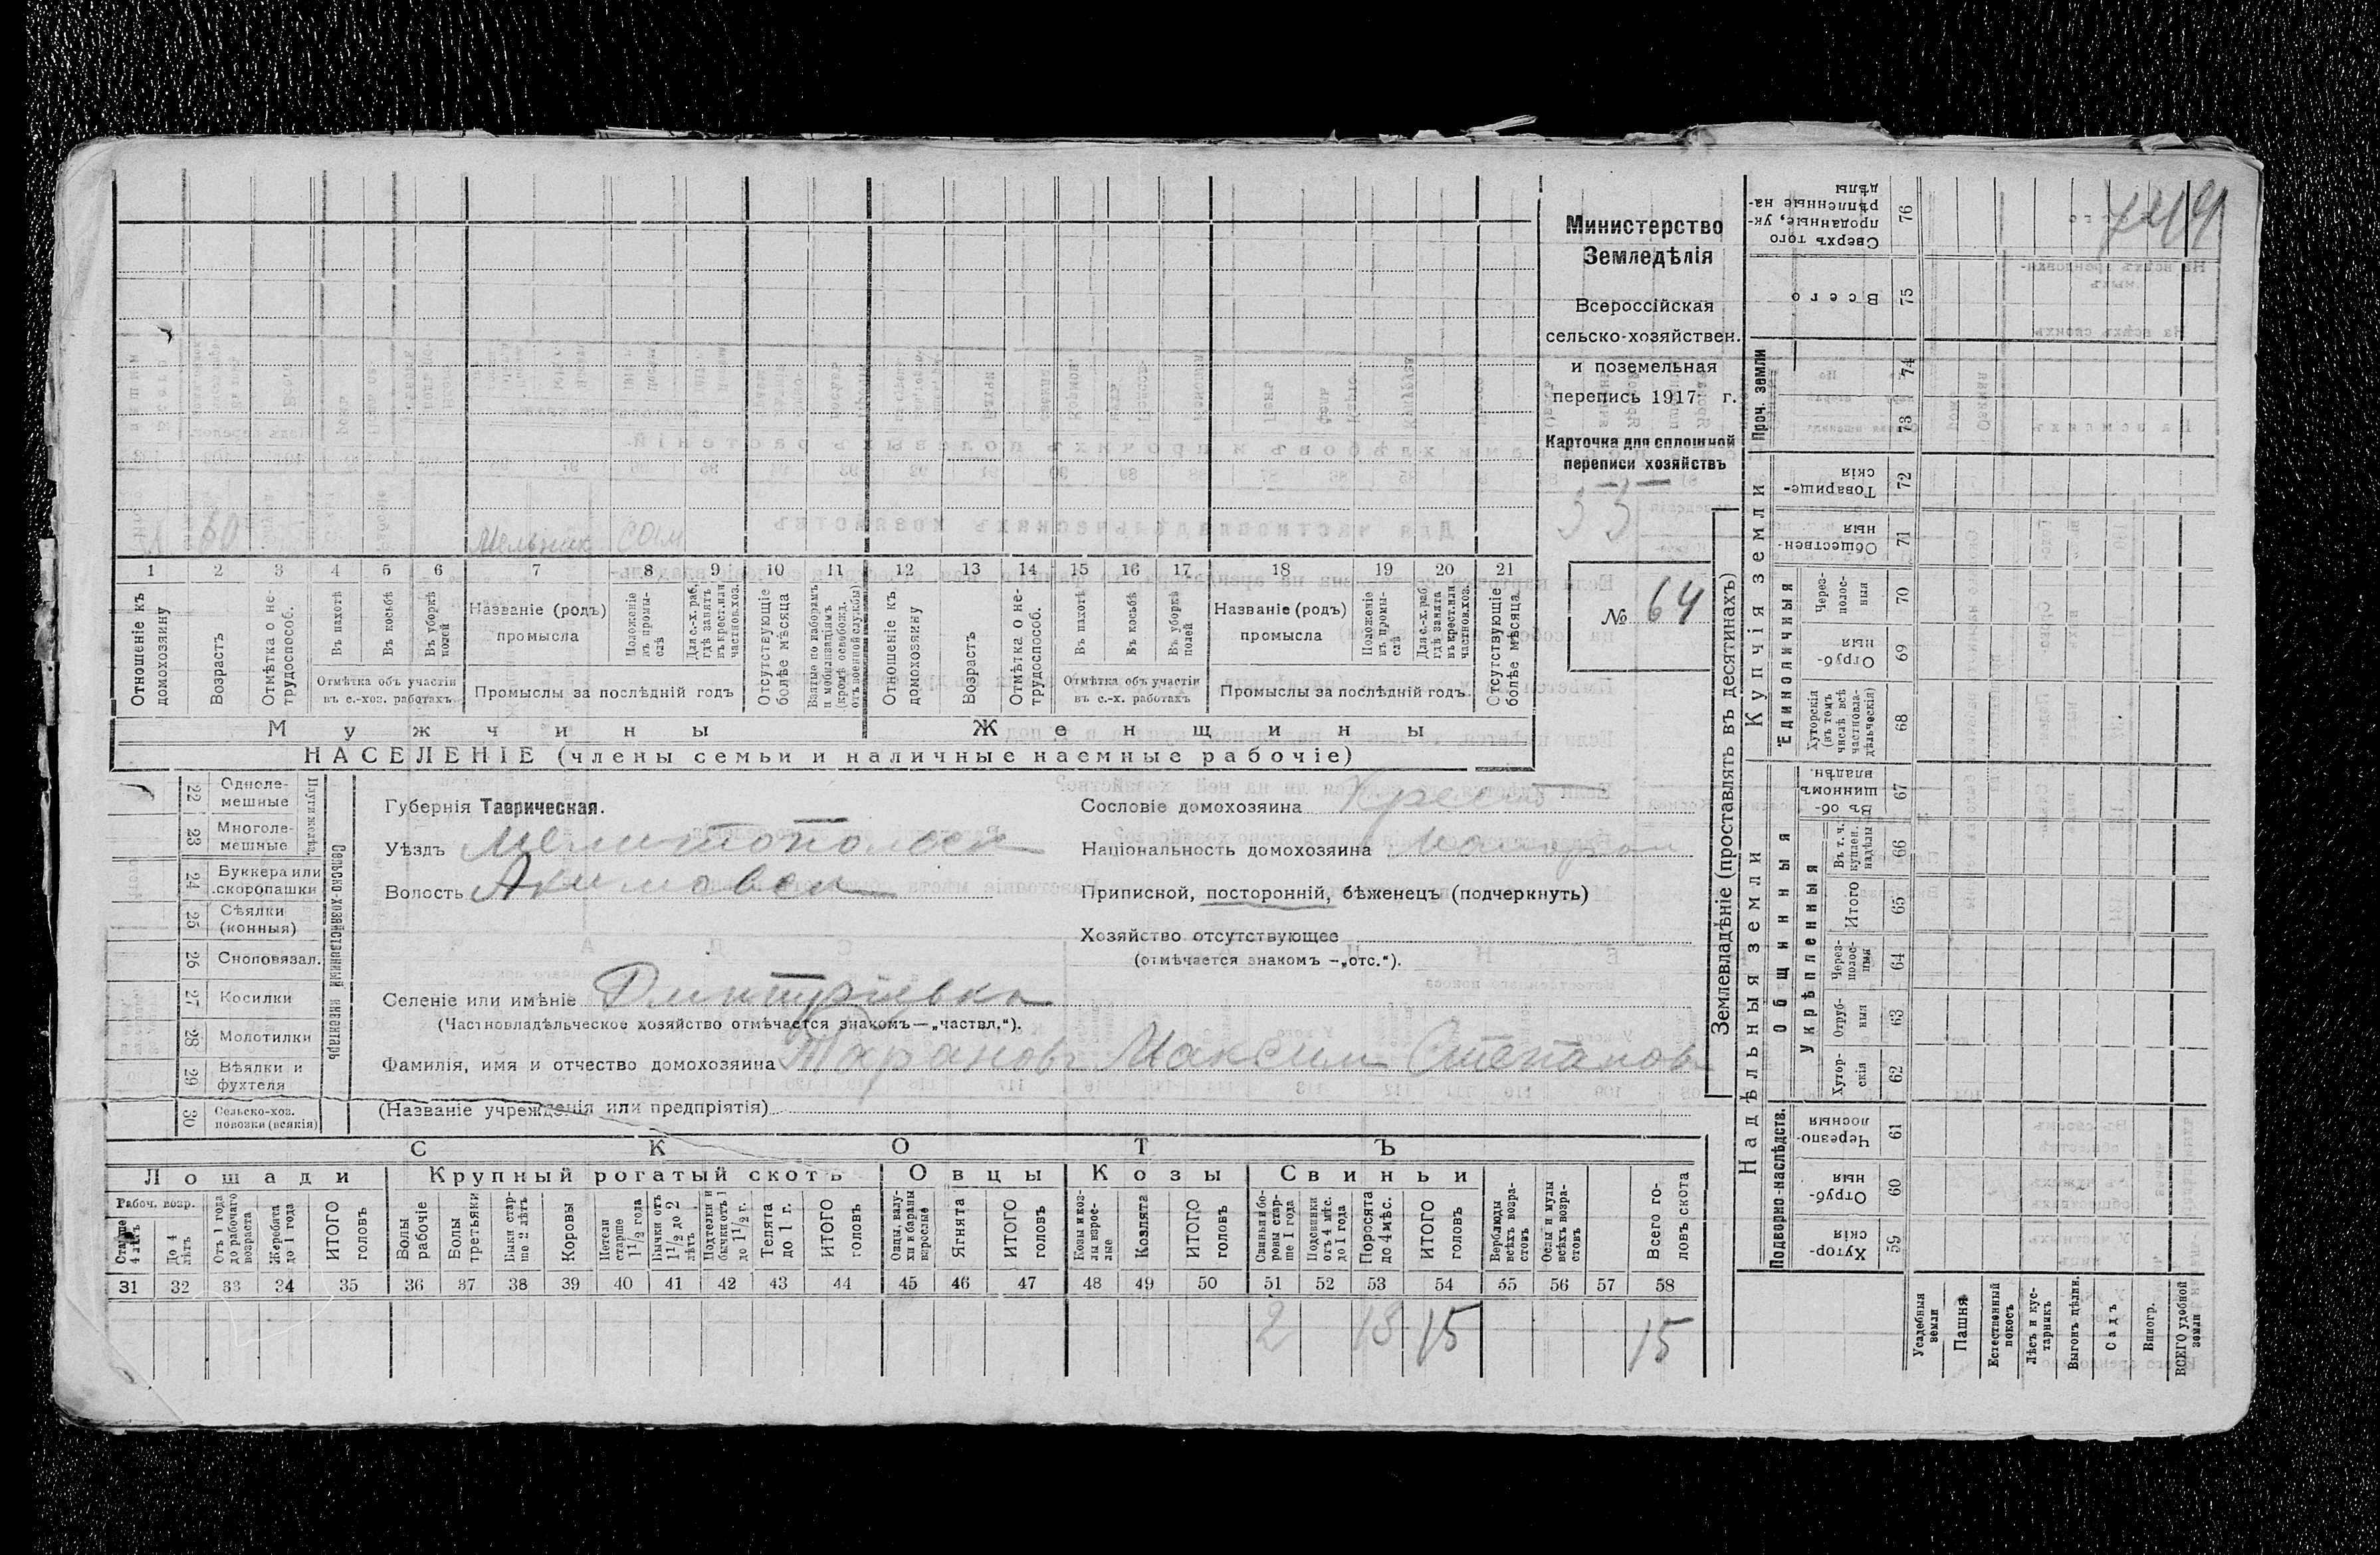 749
Министерство
Земледѣлія
Всероссійская
сельско-хозяйствен.
и поземельная
перепись 1917 г.
Карточка для сплошной
переписи хозяйствъ
33
№ 64
60 Мельник
1 2 3 4 5 6 7 8 9 10 11 12 13 14 15 16 17 18 19 20 21
Отношеніе къ домохозяину
Возрастъ
Отмѣтка о не-трудоспособ.
Въ пахотѣ
Въ косьбѣ
Въ уборкѣ полей
Отмѣтка объ участіи въ с.-хоз. работахъ
Названіе (родъ) промысла
Положеніе въ промы-слѣ
Для с.-х. раб. гдѣ занятъ въ крест. или частнов. хоз.
Промыслы за послѣдній годъ
Отсутствующіе болѣе мѣсяца
Взятые по наборамъ и мобилизаціямъ (кромѣ освобожд. отъ военной службы)
Отношеніе къ домохозяину
Возрастъ
Отмѣтка о не-трудоспособ.
Въ пахотѣ
Въ косьбѣ
Въ уборкѣ полей
Отмѣтка объ участіи въ с.-х. работахъ
Названіе (родъ) промысла
Положеніе въ промы-слѣ
Для с.-х. раб. гдѣ занята въ крест. или частнов. хоз.
Промыслы за послѣдній годъ
Отсутствующіе болѣе мѣсяца
Мужчины Женщины
НАСЕЛЕНІЕ (члены семьи и наличные наемные рабочіе)
Сельско-хозяйственный инвентарь
Плуги желѣз.
22 Одноле-мешные
23 Многоле-мешные
24 Буккера или скоропашки
25 Сѣялки (конныя)
26 Сноповязал.
27 Косилки
28 Молотилки
29 Вѣялки и фухтеля
30 Сельско-хоз. повозки (всякія)
Губернія Таврическая.
Уѣздъ Мелитопольск
Волость Акимовск
Сословіе домохозяина Крест
Національность домохозяина
Приписной, посторонній, бѣженецъ (подчеркнуть)
Хозяйство отсутствующее
(отмѣчается знакомъ —„отс.“).
Селеніе или имѣніе Дмитріевка
(Частновладѣльческое хозяйство отмѣчается знакомъ—„частвл.“).
Фамилія, имя и отчество домохозяина Тарановъ Максим Степановъ
(Названіе учрежденія или предпріятія)
СКОТЪ
Лошади Крупный рогатый скотъ Овцы Козы Свиньи
Рабоч. возр.
Старше 4 лѣтъ
До 4 лѣтъ
Отъ 1 года до рабочаго возраста
Жеребята до 1 года
ИТОГО головъ
Волы рабочіе
Волы третьяки
Быки стар-ше 2 лѣтъ
Коровы
Нетели старше 1 1/2 года
Бычки отъ 1 1/2 до 2 лѣтъ
Подтелки и бычки отъ 1 до 1 1/2 г.
Телята до 1 г.
ИТОГО головъ
Овцы, валу-хи и бараны взрослые
Ягнята
ИТОГО головъ
Козы и коз-лы взрос-лые
Козлята
ИТОГО головъ
Свиньи и бо-ровы стар-ше 1 года
Подсвинки отъ 4 мѣс. до 1 года
Поросята до 4 мѣс.
ИТОГО головъ
Верблюды всѣхъ возра-стовъ
Ослы и мулы всѣхъ возра-стовъ
Всего го-ловъ скота
31 32 33 34 35 36 37 38 39 40 41 42 43 44 45 46 47 48 49 50 51 52 53 54 55 56 57 58
2 13 15 15
Землевладѣніе (проставлять въ десятинахъ)
Надѣльныя земли
Купчія земли
Проч. земли
Подворно-наслѣдств.
Общинныя
Укрѣпленныя
Единоличныя
Сверхъ того проданные, ук-рѣпленные на-дѣлы 76
Всего 75
74
73
Товарище-скія 72
Обществен-ныя 71
Через-полос-ныя 70
Отруб-ныя 69
Хуторскія (въ томъ числѣ всѣ частновла-дѣльческія) 68
Въ об-щинномъ владѣн. 67
Въ т. ч. куплен. надѣлы 66
Итого 65
Через-полос-ныя 64
Отруб-ныя 63
Хутор-скія 62
Черезпо-лосныя 61
Отруб-ныя 60
Хутор-скія 59
Усадебныя земли
Пашня
Естественный покосъ
Лѣсъ и кус-тарникъ
Выгонъ цѣлин.
Садъ
Виногр.
ВСЕГО удобной земли